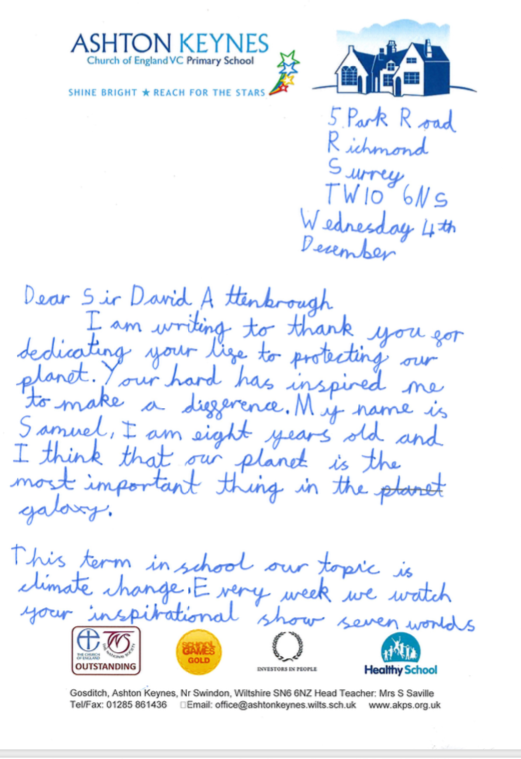 ASHTON KEYNES
Church of England VC Primary School
SHINE BRIGHT ★ REACH FOR THE STARS
5 Park Road
Richmond
Surrey
TW10 6NS
Wednesday 4th
December
Dear Sir David Attenbrough
I am writing to thank you for
dedicating your life to protecting our
planet. Your hard has inspired me
to make a difference. My name is
Samuel, I am eight years old and
I think that our planet is the
most important thing in the planet
galaxy.
This term in school our topic is
climate change. Every week we watch
your inspirational show seven worlds
THE CHURCH OF ENGLAND
OUTSTANDING
SCHOOL GAMES
GOLD
INVESTORS IN PEOPLE
Healthy School
Gosditch, Ashton Keynes, Nr Swindon, Wiltshire SN6 6NZ Head Teacher: Mrs S Saville
Tel/Fax: 01285 861436 □Email: office@ashtonkeynes.wilts.sch.uk www.akps.org.uk